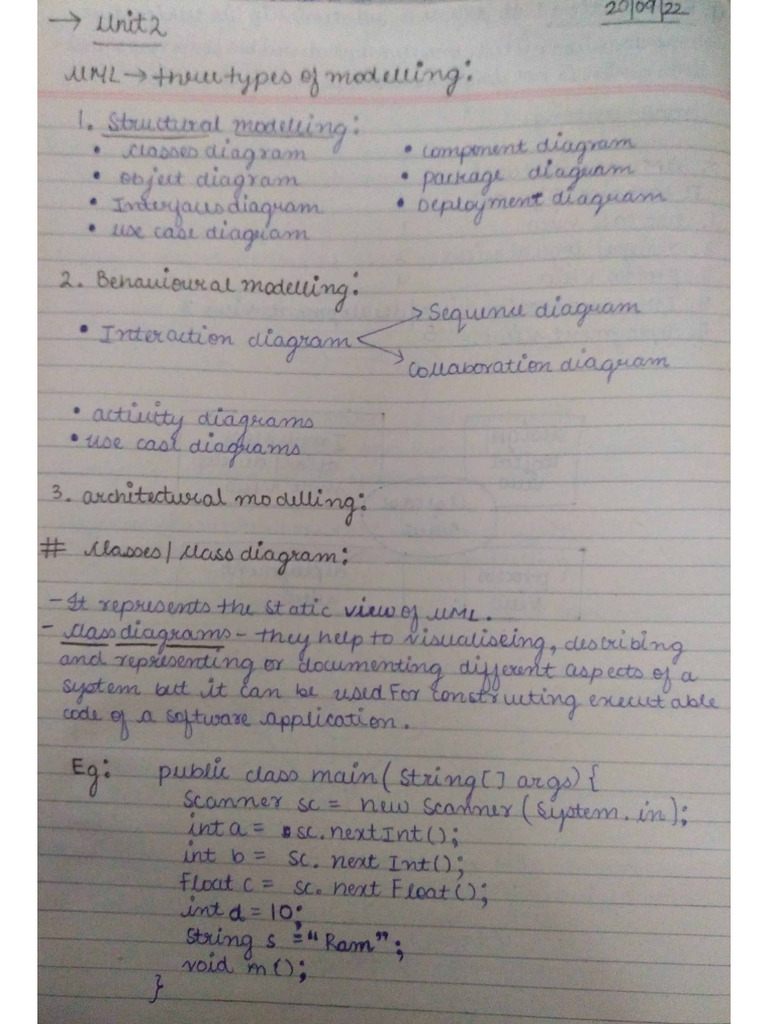 20/09/22
→ Unit 2
UML → three types of modelling:
1. Structural modelling:
• Classes diagram
• object diagram
• Interfaces diagram
• use case diagram
• component diagram
• package diagram
• Deployment diagram
2. Behavioural modelling:
• Interaction diagram
Sequence diagram
Collaboration diagram
• activity diagrams
• use case diagrams
3. architectural modelling:
# Classes / Class diagram:
- It represents the static view of UML.
- Class diagrams - they help to visualiseing, describing
and representing or documenting different aspects of a
system but it can be used for constructing executable
code of a software application.
Eg: public class main (String[] args) {
Scanner sc = new Scanner (System.in);
int a = sc.nextInt();
int b = sc.next Int();
Float c = sc.next Float();
int d = 10;
String s = "Ram";
void m();
}